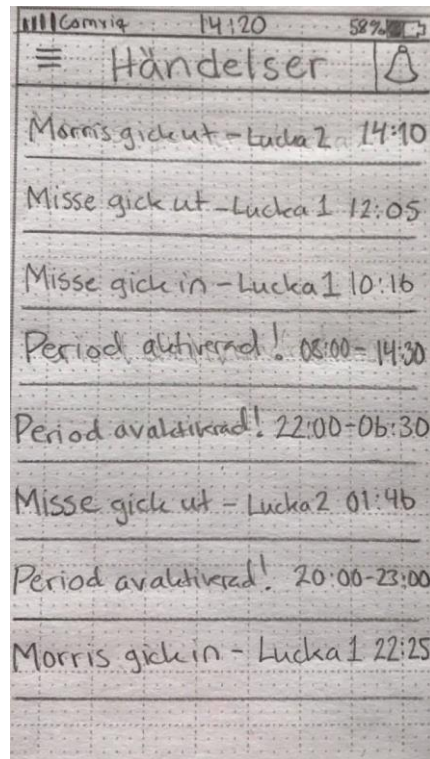 Comviq 14:20 58%
Händelser
Morris gick ut - Lucka 2 14:10
Misse gick ut - Lucka 1 12:05
Misse gick in - Lucka 1 10:16
Period aktiverad! 08:00 - 14:30
Period avaktiverad! 22:00-06:30
Misse gick ut - Lucka 2 01:46
Period avaktiverad! 20:00-23:00
Morris gick in - Lucka 1 22:25